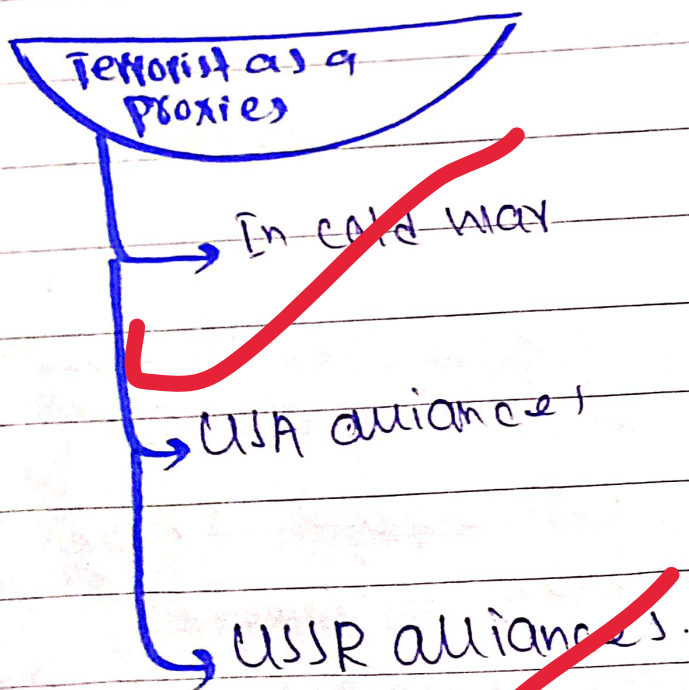 Terrorist as a
proxies
In cold war
USA alliances
USSR alliances.